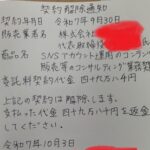 契約解除通知
契約年月日 令和7年9月30日
販売業者名 株式会社
代表取締役
商品名 SNSアカウント運用のコンテンツ
販売等のコンサルティング業務契約
委託料契約代金 四十九万八千円
上記の契約は解除します。
支払った代金四十九万八千円を返金
してください。
令和7年10月3日